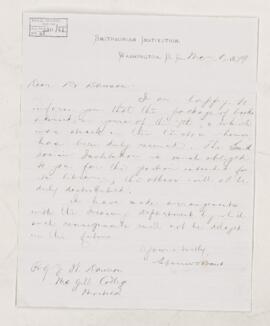 SMITHSONIAN INSTITUTION,
WASHINGTON, D.C. 1879
Dear Dr. Dawson:
I am happy to
inform you that the package of books
yours of the 7th
in the
has been duly received. The Smith-
sonian Institution is much obliged
to you for the portion intended for
its library; the others will all be
duly distributed.
I have made arrangements
with the Treasury department by which
such consignments will not be stopped
in the future.
Yours truly,
Spencer F. Baird
J. W. Dawson
McGill College
Montreal